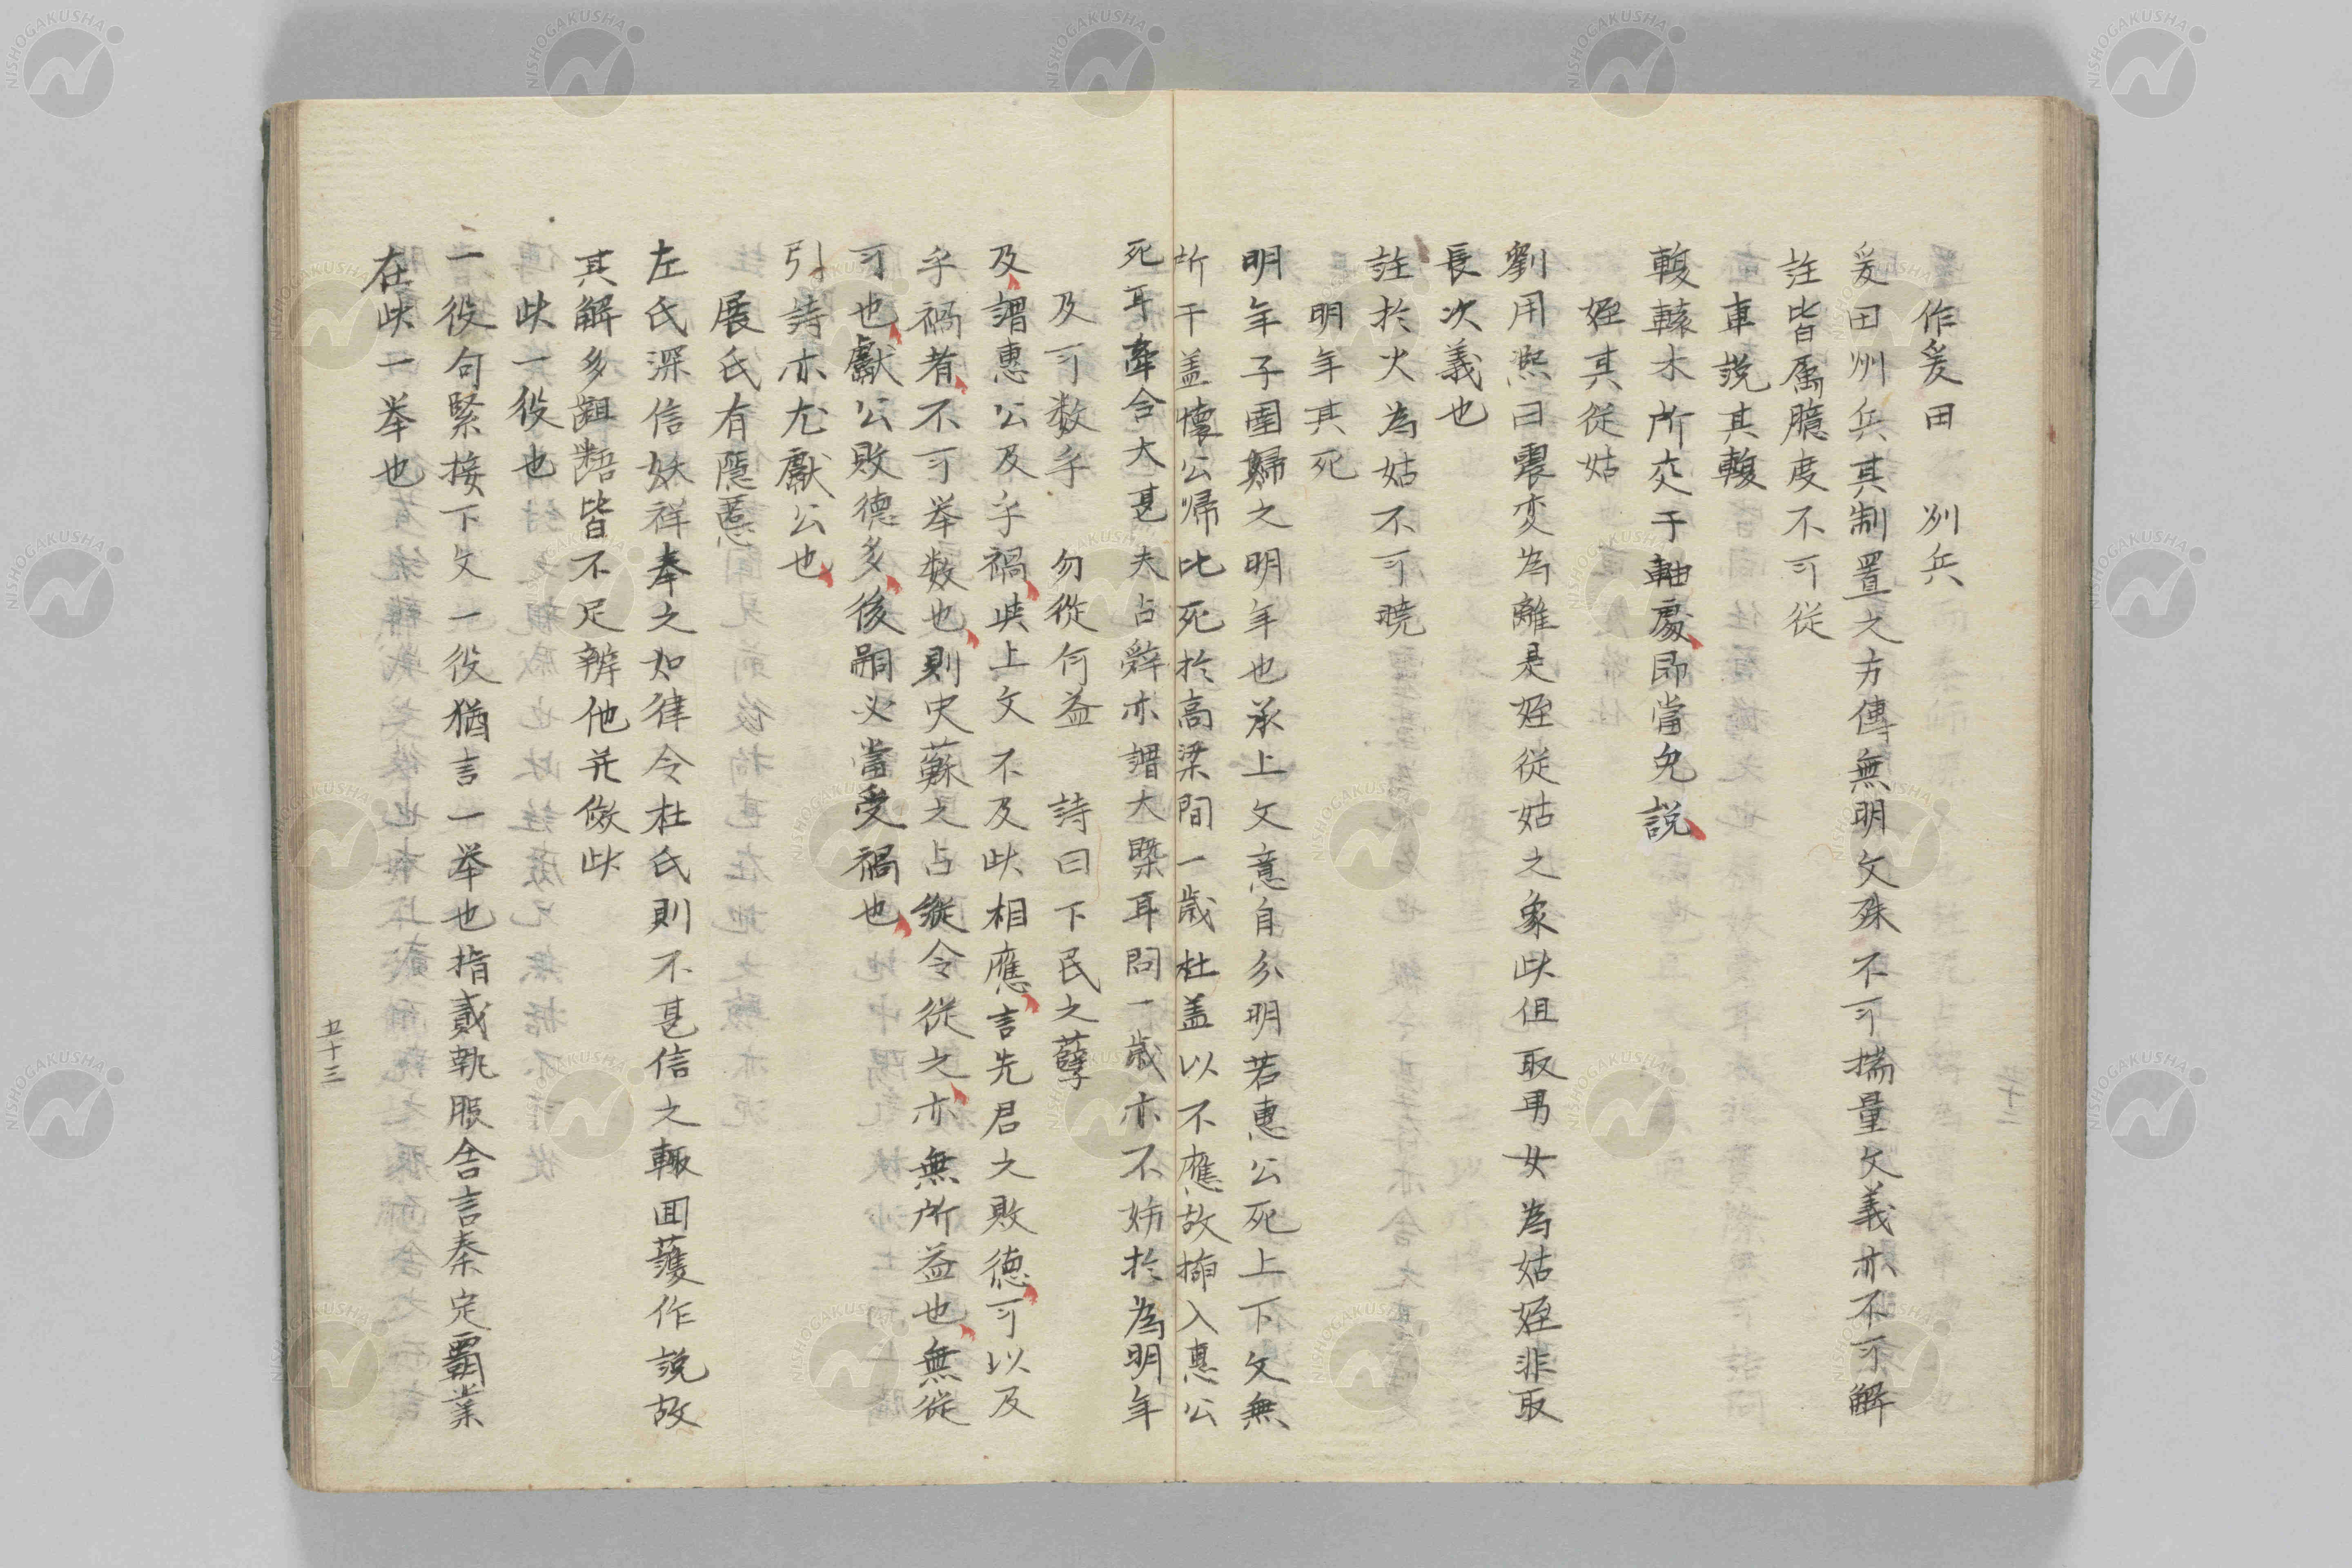 作爰田　州兵
爰田州兵其制置之方傳無明文殊不可揣量文義亦不可解
註皆属臆度不可従
車説其輹
輹轅木所交于軸處即當允説
姪其従姑
劉用熙曰震変為離是姪従姑之象此但取男女為姑姪非取
長次義也
註於火為姑不可暁
明年其死
明年子圉歸之明年也承上文意自分明若惠公死上下文無
所干盖懐公帰比死於高梁間一歳杜盖以不應故揷入惠公
死耳牽合大甚夫占辤亦謂大槩耳間一歳亦不妨於為明年
及可数乎　勿從何益　詩曰下民之孽
及謂惠公及乎禍与上文不及此相應言先君之敗德可以及
乎禍者不可挙数也則史蘇之占縦令従之亦無所益也無従
可也獻公敗德多後嗣必當受禍也
引詩亦尤獻公也
展氏有隱慝
左氏深信妖祥奉之如律令杜氏則不甚信之輙囬護作説故
其解多齟齬皆不足辨他並倣此
此一役也
一役句緊接下文一役猶言一挙也指貳執服舎言秦定覇業
在此一挙也
五十三